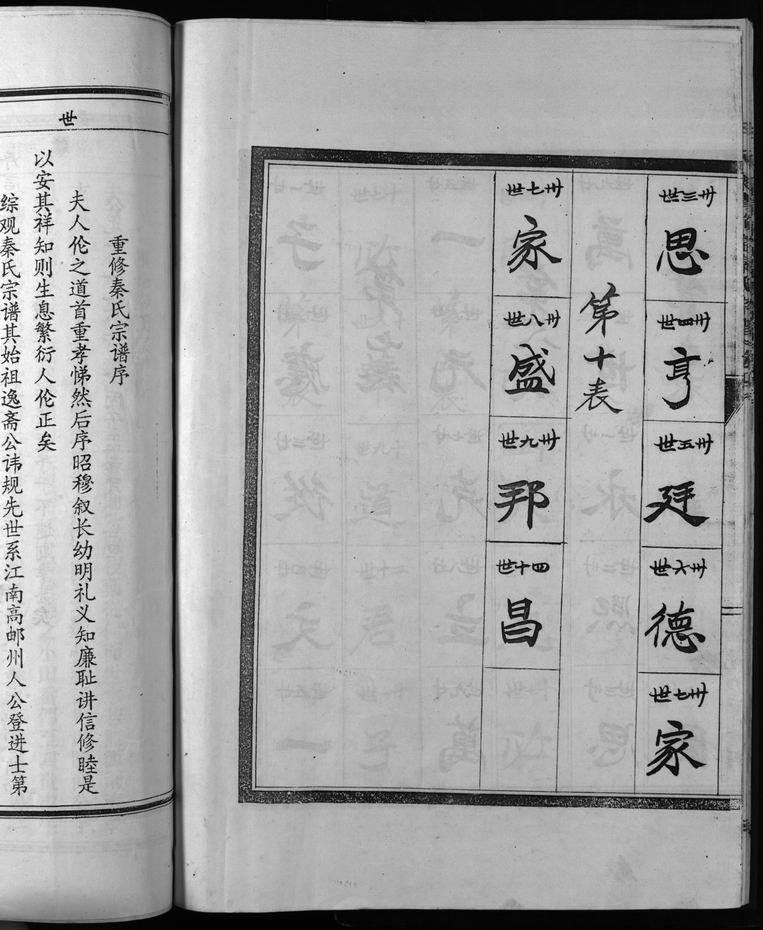 卅三世
思
卅四世
亨
卅五世
廷
卅六世
德
卅七世
家
第十表
卅七世
家
卅八世
盛
卅九世
邦
四十世
昌
世
重修秦氏宗谱序
夫人伦之道首重孝悌然后序昭穆叙长幼明礼义知廉耻讲信修睦是
以安其祥知则生息繁衍人伦正矣
综观秦氏宗谱其始祖逸斋公讳规先世系江南高邮州人公登进士第